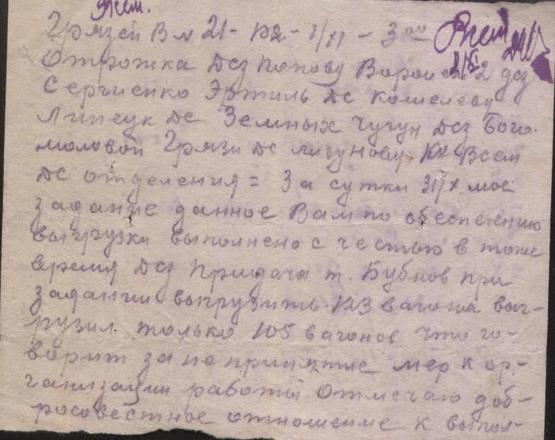 Всем.
Грязей В м 21 - 1/XI - 3 00 Всем
Отрожка Дсз Попову Вороне 2 дсз
Сергиенко Эртиль Дс Кошелеву
Липецк Дс Земных Чугун Дсз Бого-
моловой Грязи Дс Лигунову Всем
Дс отделения = За сутки 31/X мое
задание данное Вам по обеспечению
выгрузки выполнено с честью в тоже
время Дсз Придача т. Бубнов при
задании выгрузить 123 вагона выг-
рузил только 105 вагонов что го-
ворит за не принятие мер к ор-
ганизации работы. Отмечаю доб-
росовестное отношение к выпол-